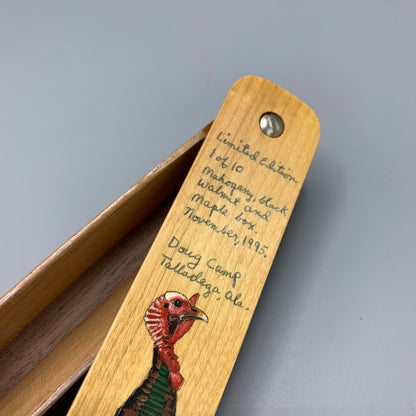 Limited Edition
1 of 10
Mahogany, black
Walnut and
Maple box.
November, 1995.
Doug Camp
Talladega, Ala.